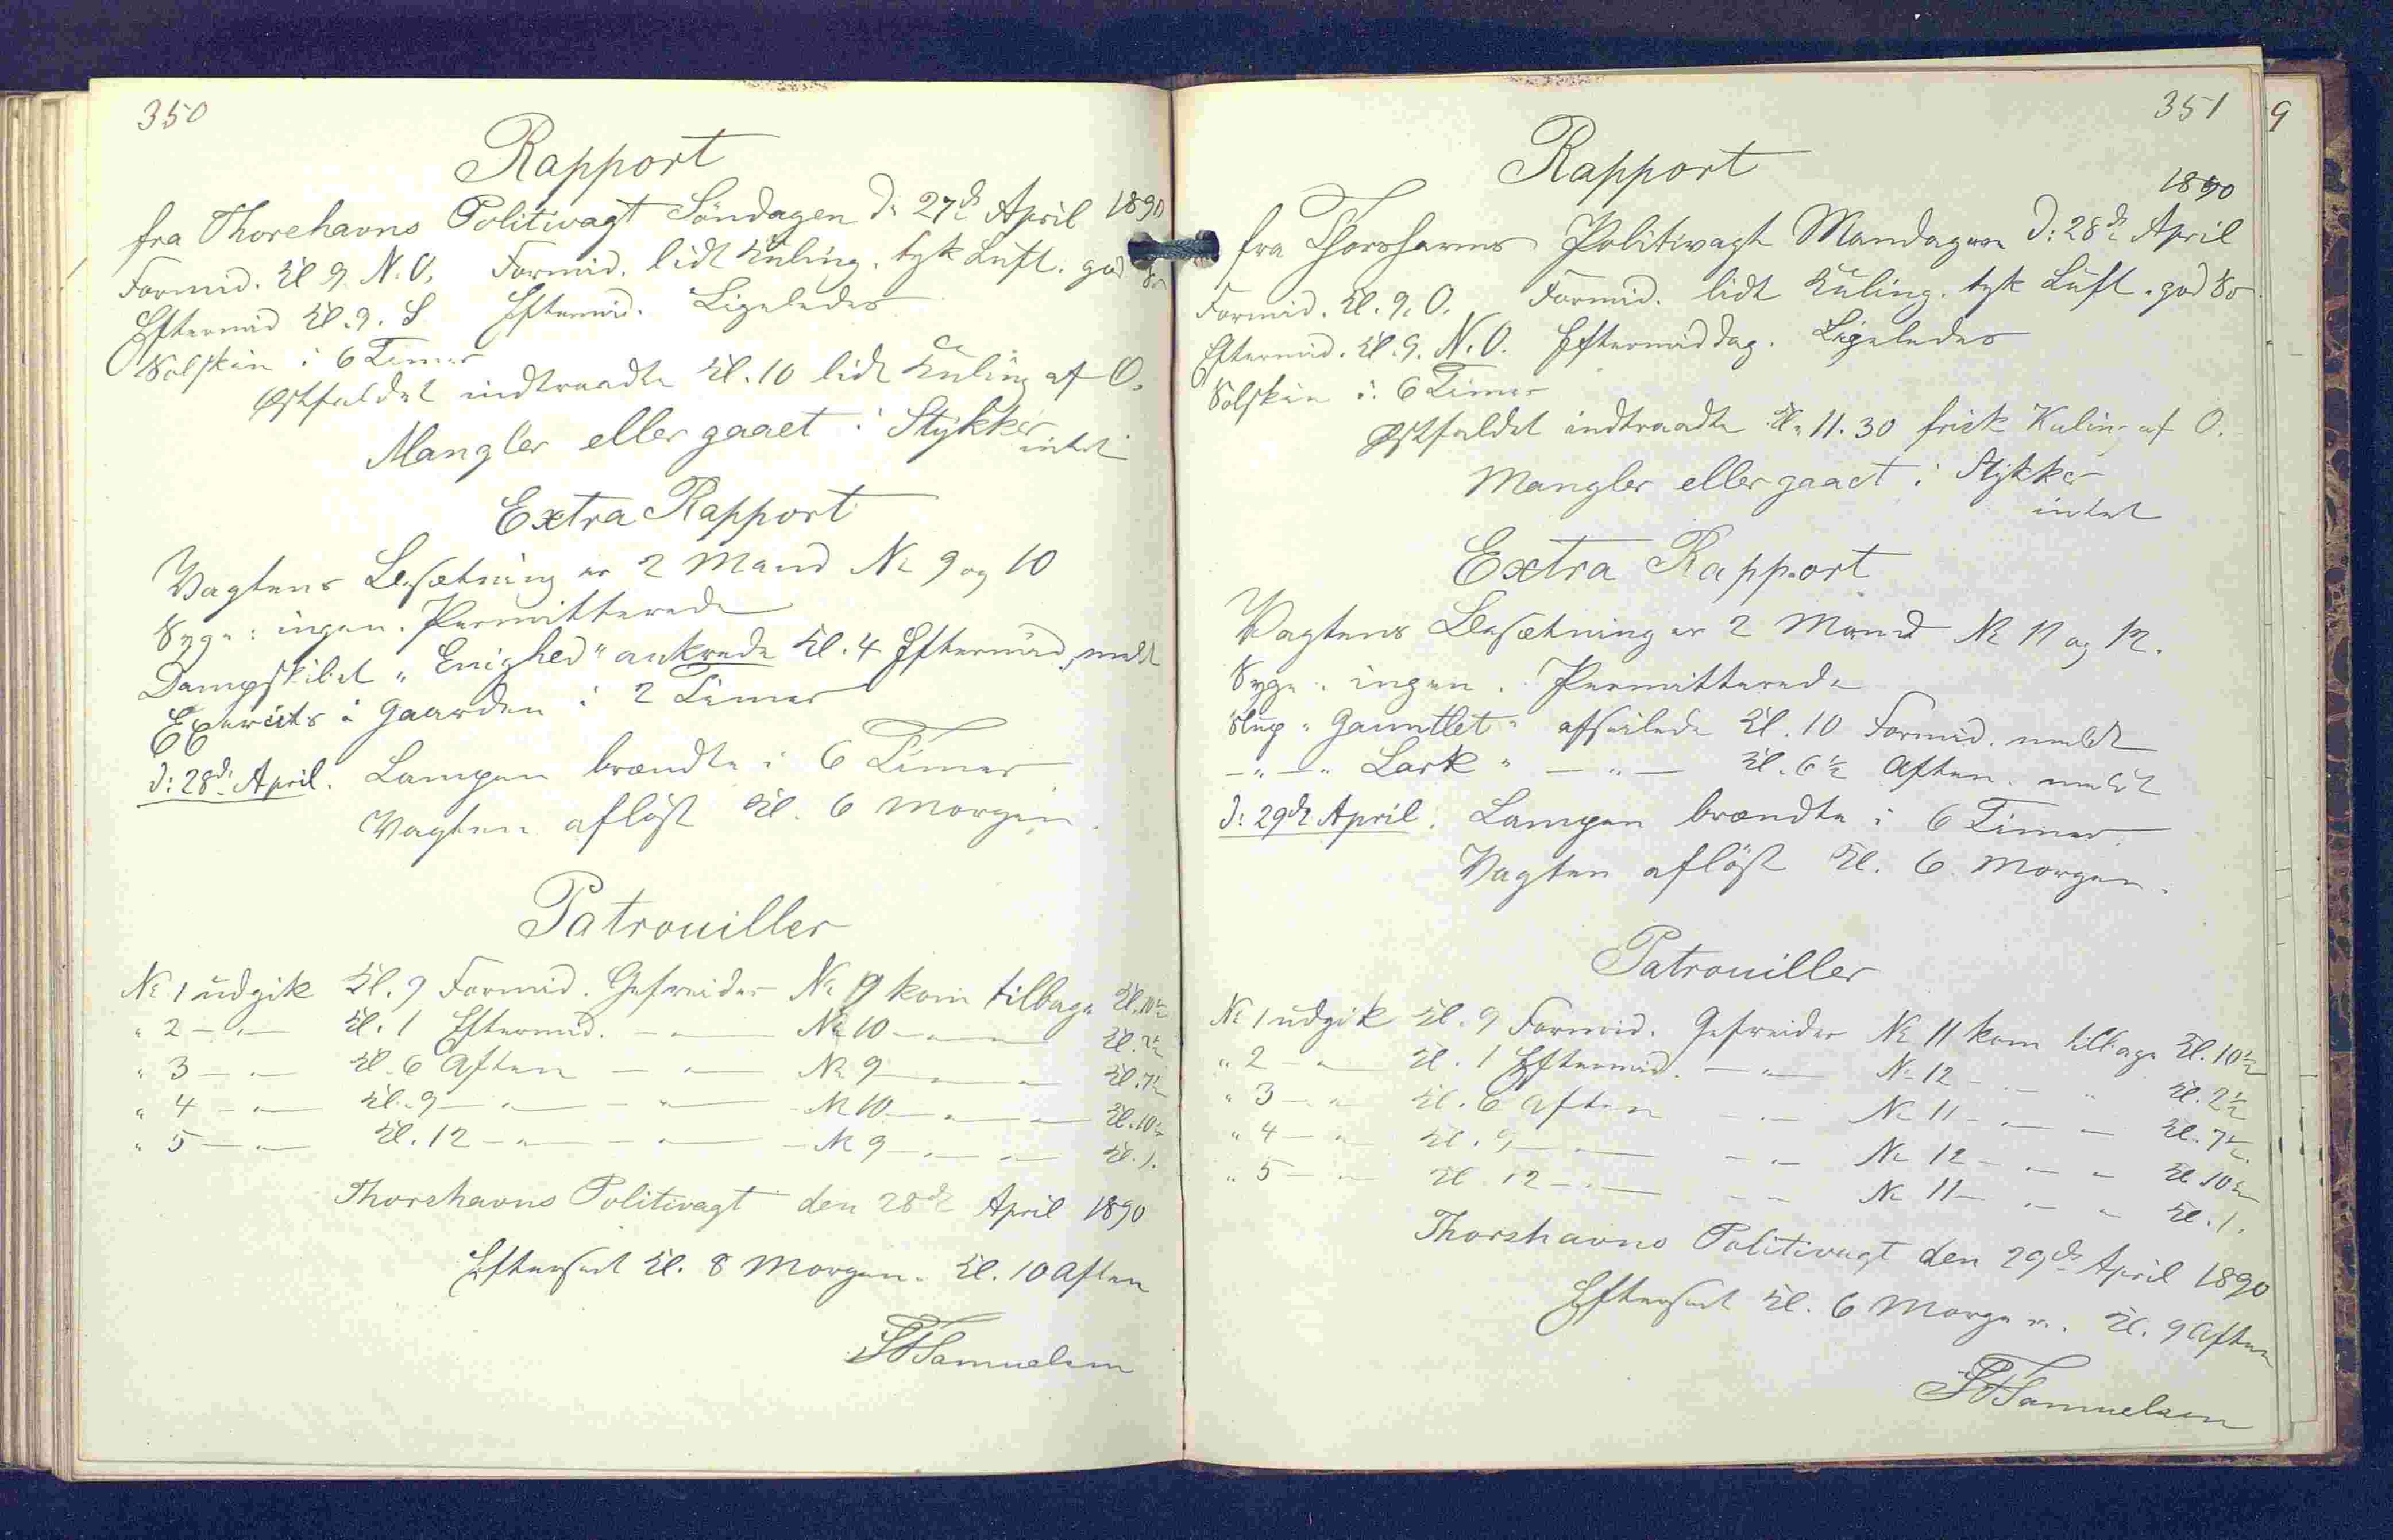 350
Rapport
fra Thorshavns Politivagt Söndagen d: 27de April 1890
Formid. Kl 9. N.O. Formid. lidt Kuling. tyk Luft. god Sø
Eftermid Kl. 9. S Eftermid. Ligeledes
Solskin i 6 Timer
Østfaldet indtraadte Kl. 10 lidt Kuling af O.
Mangler eller gaaet i Stykker
intet
Extra Rapport
Vagtens Besætning er 2 Mand No 9 og 10
Syge: ingen. Permitterede
Dampskibet „Enighed" ankrede Kl. 4 Eftermid, meldt
Exercits i Gaarden i 2 Timer
d: 28de April. Lampen brændte i 6 Timer
Vagten aflöst Kl. 6 Morgen.
Patrouiller
No 1 udgik Kl. 9 Formid. Gefreider No 9 kom tilbage Kl. 10½
" 2 — " — Kl. 1 Eftermid. — " — No 10 — " — " — Kl. 2½
" 3 — " — Kl. 6 Aften — " — No 9 — " — " — Kl. 7½
" 4 — " — Kl. 9 — " — — " — No 10 — " — " — Kl. 10½
" 5 — " — Kl. 12 — " — — " — No 9 — " — " — Kl. 1.
Thorshavns Politivagt den 28de April 1890
Efterseet Kl. 8 Morgen. Kl. 10 Aften
Samuelsen
351
Rapport
1890
fra Thorshavns Politivagt Mandagen d: 28de April
Formid. Kl. 9. O. Formid. lidt Kuling. tyk Luft. god Sø
Eftermid. Kl. 9. N.O. Eftermiddag. Ligeledes
Solskin i 6 Timer
Østfaldet indtraadte Kl. 11.30 frisk Kuling af O.
Mangler eller gaaet i Stykker
intet
Extra Rapport
Vagtens Besætning er 2 Mand No 11 og 12.
Syge: ingen. Permitterede
Slup „Gauntlet" afseilede Kl. 10 Formid. meldt
— " — „Lark" — " — Kl. 6½ Aften. meldt
d: 29de April. Lampen brændte i 6 Timer
Vagten aflöst Kl. 6 Morgen.
Patrouiller
No 1 udgik Kl. 9 Formid. Gefreider No 11 kom tilbage Kl. 10½
" 2 — " — Kl. 1 Eftermid. — " — No 12 — " — " Kl. 2½
" 3 — " — Kl. 6 Aften — " — No 11 — " — " — Kl. 7½.
" 4 — " — Kl. 9 — " — — " — No 12 — " — " — Kl 10½
" 5 — " — Kl 12 — " — — " — No 11 — " — " — Kl. 1.
Thorshavns Politivagt den 29de April 1890
Efterseet Kl. 6 Morgen. Kl. 9 Aften
Samuelsen
9